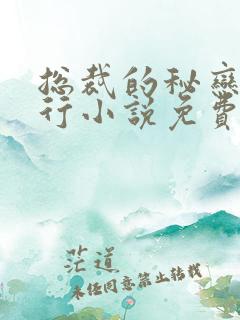 总裁的秘恋
行小说免费
茫道
未经同意禁止转载